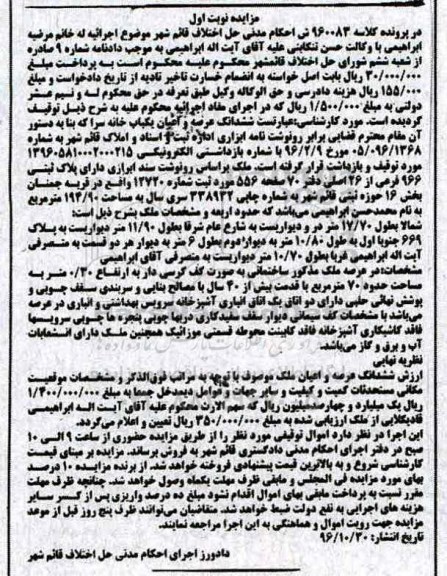 مزایده نوبت اول
در پرونده کلاسه ۹۶۰۰۸۳ ش احکام مدنی حل اختلاف قائم شهر موضوع اجرائیه له خانم مرضیه
ابراهیمی با وکالت حسن تنکابنی علیه آقای آیت اله ابراهیمی به موجب دادنامه شماره ۹ صادره
از شعبه ششم شورای حل اختلاف قائمشهر محکوم علیه محکوم است به پرداخت مبلغ
۳۰/۰۰۰/۰۰۰ ریال بابت اصل خواسته به انضمام خسارت تاخیر تادیه از تاریخ دادخواست و مبلغ
۱۵۵/۰۰۰ ریال هزینه دادرسی و حق الوکاله وکیل طبق تعرفه در حق محکوم له و نیم عشر
دولتی به مبلغ ۱/۵۰۰/۰۰۰ ریال که در اجرای مفاد اجرائیه محکوم علیه به شرح ذیل توقیف
گردیده است. مورد کارشناسی:عبارتست ششدانگ عرصه و اعیان یکباب خانه سرا که بنا به دستور
آن مقام محترم قضایی برابر رونوشت نامه ابزاری اداره ثبت اسناد و املاک قائم شهر به شماره
۰۵/۰۹۶/۱۳۶۸ مورخ ۹۶/۲/۹ با شماره بازداشتی الکترونیکی ۱۳۹۶۵۸۱۰۰۲۰۰۰۲۱۵
مورد توقیف و بازداشت قرار گرفته است. ملک براساس رونوشت سند ابرازی دارای پلاک ثبتی
۹۶۶ فرعی از ۲۶ اصلی دفتر ۷۰ صفحه ۵۵۶ مورد ثبت شماره ۱۲۷۲۰ واقع در قریه جمنان
بخش ۱۶ حوزه ثبتی قائم شهر به شماره چاپی ۳۳۸۹۳۲ سری سال به مساحت ۱۹۴/۹۰ مترمربع
به نام محمدحسن ابراهیمی می‌باشد که حدود اربعه و مشخصات ملک بشرح ذیل است:
شمالا بطول ۱۷/۷۰ متر در و دیواریست به شارع عام شرقا بطول ۱۱/۹۰ متر دیواریست به پلاک
۶۶۹ جنوبا اول به طول ۱۰/۸۰ متر به دیوار/دوم بطول ۶ متر به دیوار هر دو قسمت به متصرفی
آیت اله ابراهیمی غربا بطول ۱۰/۷۰ متر دیواریست به متصرفی آقای ابراهیمی
مشخصات:در عرصه ملک مذکور ساختمانی به صورت کف کرسی دار به ارتفاع ۰/۳۰ متر به
مساحت حدود ۷۰ مترمربع با قدمت بیش از ۴۰ سال با مصالح بنایی و سربندی سقف چوبی و
پوشش نهائی حلبی دارای دو اتاق یک اتاق انباری آشپزخانه سرویس بهداشتی و انباری در عرصه
می‌باشد با مشخصات کف سیمانی دیوار سقف سفیدکاری دربها چوبی پنجره ها چوبی سرویسها
فاقد کاشیکاری آشپزخانه فاقد کابینت محوطه قسمتی موزائیک همچنین ملک دارای انشعابات
آب و برق و گاز می‌باشد.
نظریه نهایی
ارزش ششدانگ عرصه و اعیان ملک موصوف با توجه به مراتب فوق‌الذکر و مشخصات موقعیت
مکانی مستحدثات کمیت و کیفیت و سایر جهات و عوامل ذیمدخل جمعا به مبلغ ۱/۴۰۰/۰۰۰/۰۰۰
ریال یک میلیارد و چهارصدمیلیون ریال که سهم الارث محکوم علیه آقای آیت اله ابراهیمی
قادیکلایی از ملک ارزیابی شده به مبلغ ۳۵۰/۰۰۰/۰۰۰ ریال تعیین و اعلام می‌گردد.
این اجرا در نظر دارد اموال توقیفی مورد نظر را از طریق مزایده حضوری از ساعت ۹ الی ۱۰
صبح در دفتر اجرای احکام مدنی دادگستری قائم شهر به فروش برساند. مزایده بر مبنای قیمت
کارشناسی شروع و به بالاترین قیمت پیشنهادی فروخته خواهد شد. از برنده مزایده ۱۰ درصد
بهای مورد مزایده فی المجلس و مابقی ظرف مهلت یکماه وصول خواهد شد. چنانچه ظرف مهلت
مقرر نسبت به پرداخت مابقی بهای اموال اقدام نشود مبلغ ده درصد واریزی پس از کسر سایر
هزینه های اجرایی به نفع دولت ضبط خواهد شد. متقاضیان می‌توانند ظرف پنج روز قبل از موعد
مزایده جهت رویت اموال و هماهنگی به این اجرا مراجعه نمایند.
تاریخ انتشار: ۹۶/۱۰/۳۰
دادورز اجرای احکام مدنی حل اختلاف قائم شهر